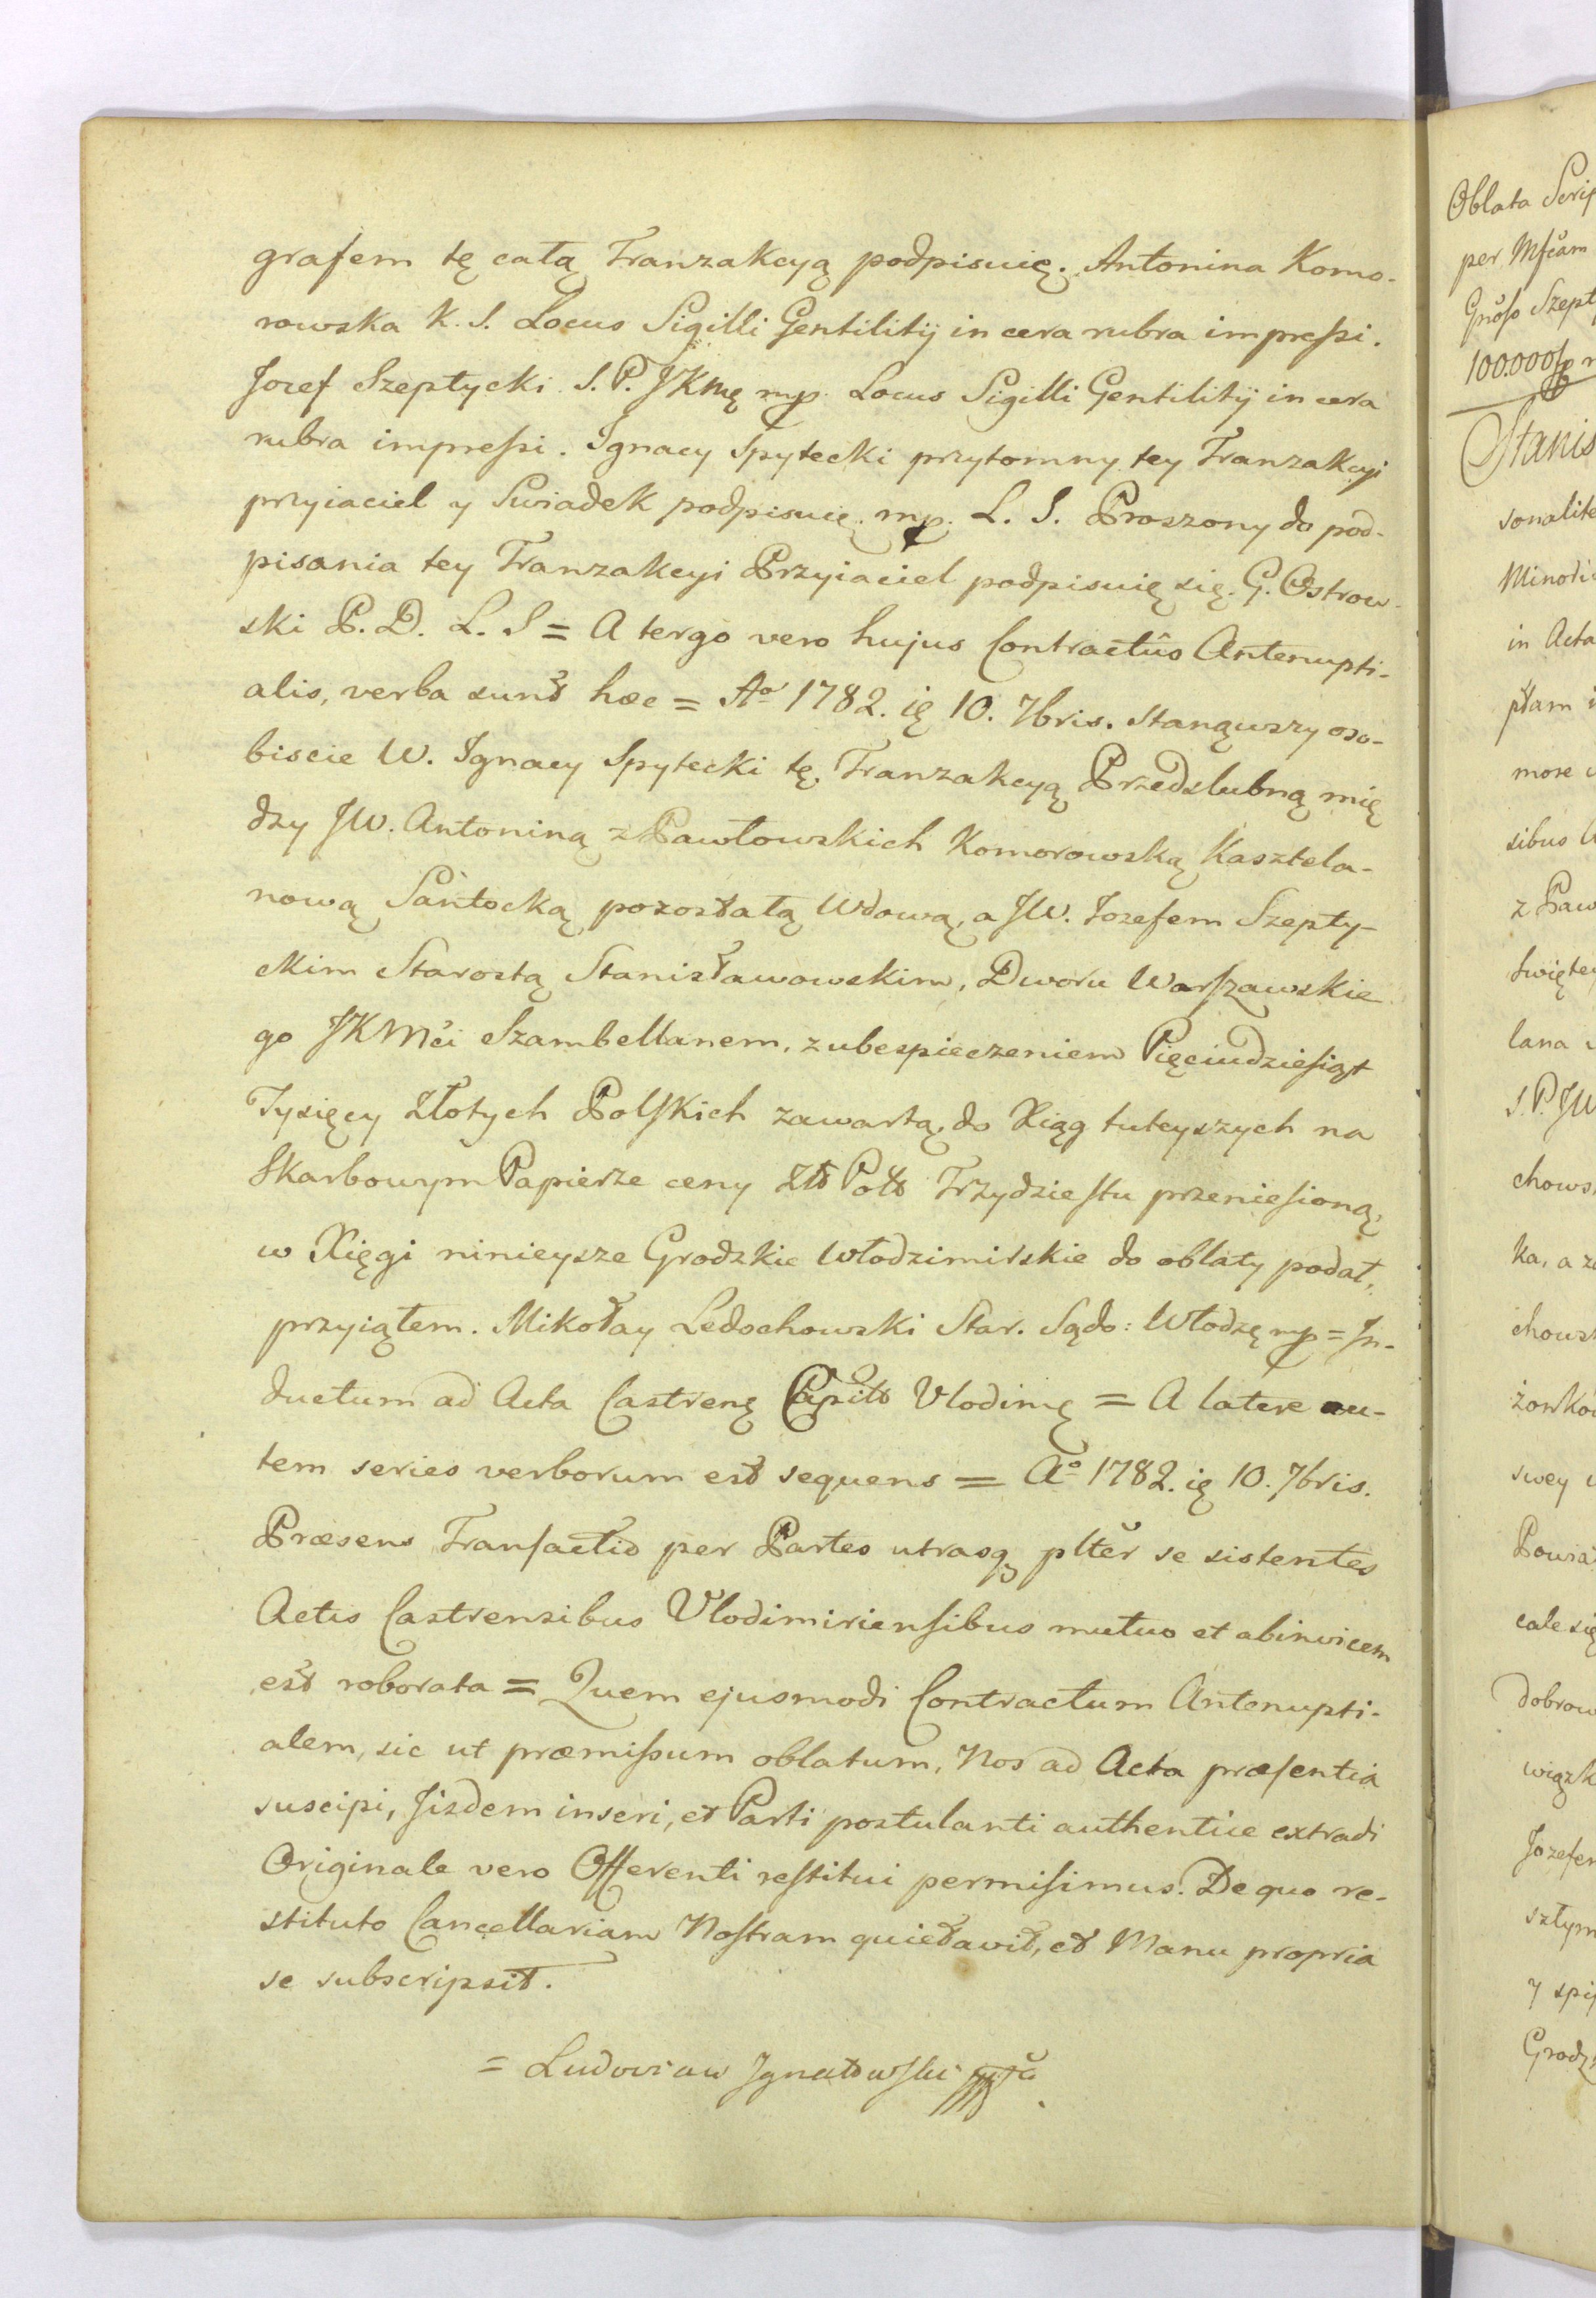 grafem tę całą Tranzakcyą podpisuię. Antonina Komo-
rowska K. S. Locus Sigilli Gentilitij in cera rubra impreſsi.
Jozef Szeptycki S. P. JKMę mp. Locus Sigilli Gentilitij in cera
rubra impreſsi. Ignacy Spytecki przytomny tey Tranzakcyi
przyiaciel y Swiadek podpisuię. mp. L. S. Proszony do pod-
pisania tey Tranzakcyi Przyiaciel podpisuię się. G. Ostrow-
ski P. D. L. S = A tergo vero hujus Contractûs Antenupti-
alis, verba sunt hæc = Aº 1782. ię 10. 7bris. Stanąwszy oso-
biscie W. Ignacy Spytecki tę Tranzakcyą Przedslubną mię
dzy JW. Antoniną z Pawłowskich Komorowską Kasztela-
nową Santocką pozostałą Wdową, a JW. Jozefem Szepty-
ckim Starostą Stanisławowskim, Dworu Warſzawskie
go JKMci Szambellanem, z ubespieczeniem Pięciudzieſiąt
Tysięcy Złotych Polſkich zawartą, do Xiąg tuteyszych na
Skarbowym Papierze ceny Złt Polt Trzydzieſtu przenieſioną,
w Xięgi ninieysze Grodzkie Włodzimirskie do oblaty podał,
przyiąłem. Mikołay Ledochowski Star. Sądo: Włodzę mp = In-
ductum ad Acta Castrenę Capitt Vlodimę = A latere au-
tem series verborum est sequens = Aº 1782. ię 10. 7bris.
Præsens Tranſactio per Partes utrasq; plter se sistentes
Actis Castrensibus Vlodimirienſibus mutuo et abinvicem
est roborata = Quem ejusmodi Contractum Antenupti-
alem, sic ut præmiſsum oblatum, Nos ad Acta præſentia
suscipi, Jisdem inseri, et Parti postulanti authentice extradi
Originale vero Offerenti reſtitui permiſimus. De quo re-
stituto Cancellariam Noſtram quietavit, et Manu propria
se subscripsit.
= Ludovicus Ignatowſki
Oblata Scrip
per Mfcam
Gnoso Szept
100.000
Stanis
sonalite
Minori
in Acta
ptam
more
sibus
z Paw
swiętey
lana
S. P. JW
chows
ka, a
chows
żonko
swey
Powia
cale się
dobrow
wiązk
Jozefem
sztym
y spi
Grodz